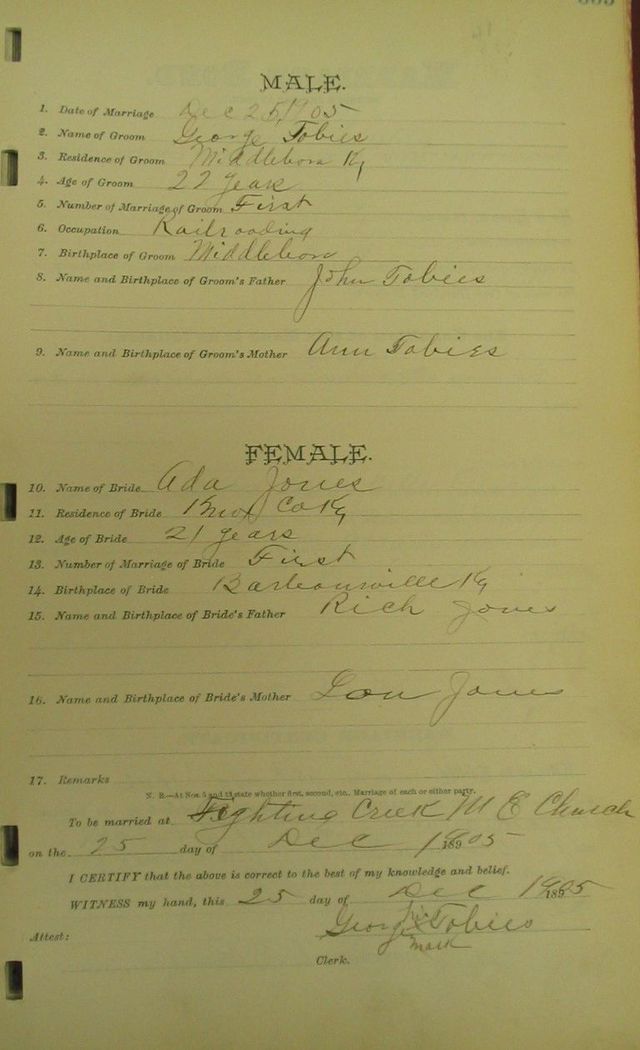 MALE.
1. Date of Marriage Dec 25, 1905
2. Name of Groom George Tobies
3. Residence of Groom Middleboro Ky
4. Age of Groom 22 years
5. Number of Marriage of Groom First
6. Occupation Railroading
7. Birthplace of Groom Middleboro
8. Name and Birthplace of Groom's Father John Tobies
9. Name and Birthplace of Groom's Mother Ann Tobies
FEMALE.
10. Name of Bride Ada Jones
11. Residence of Bride Knox Co Ky
12. Age of Bride 21 years
13. Number of Marriage of Bride First
14. Birthplace of Bride Barbourville Ky
15. Name and Birthplace of Bride's Father Rich Jones
16. Name and Birthplace of Bride's Mother Lou Jones
17. Remarks
N. B.—At Nos. 5 and 13 state whether first, second, etc., Marriage of each or either party.
To be married at Fighting Creek M E Church
on the 25 day of Dec 1905
I CERTIFY that the above is correct to the best of my knowledge and belief.
WITNESS my hand, this 25 day of Dec 1905
George his X Tobies
mark
Attest:
Clerk.